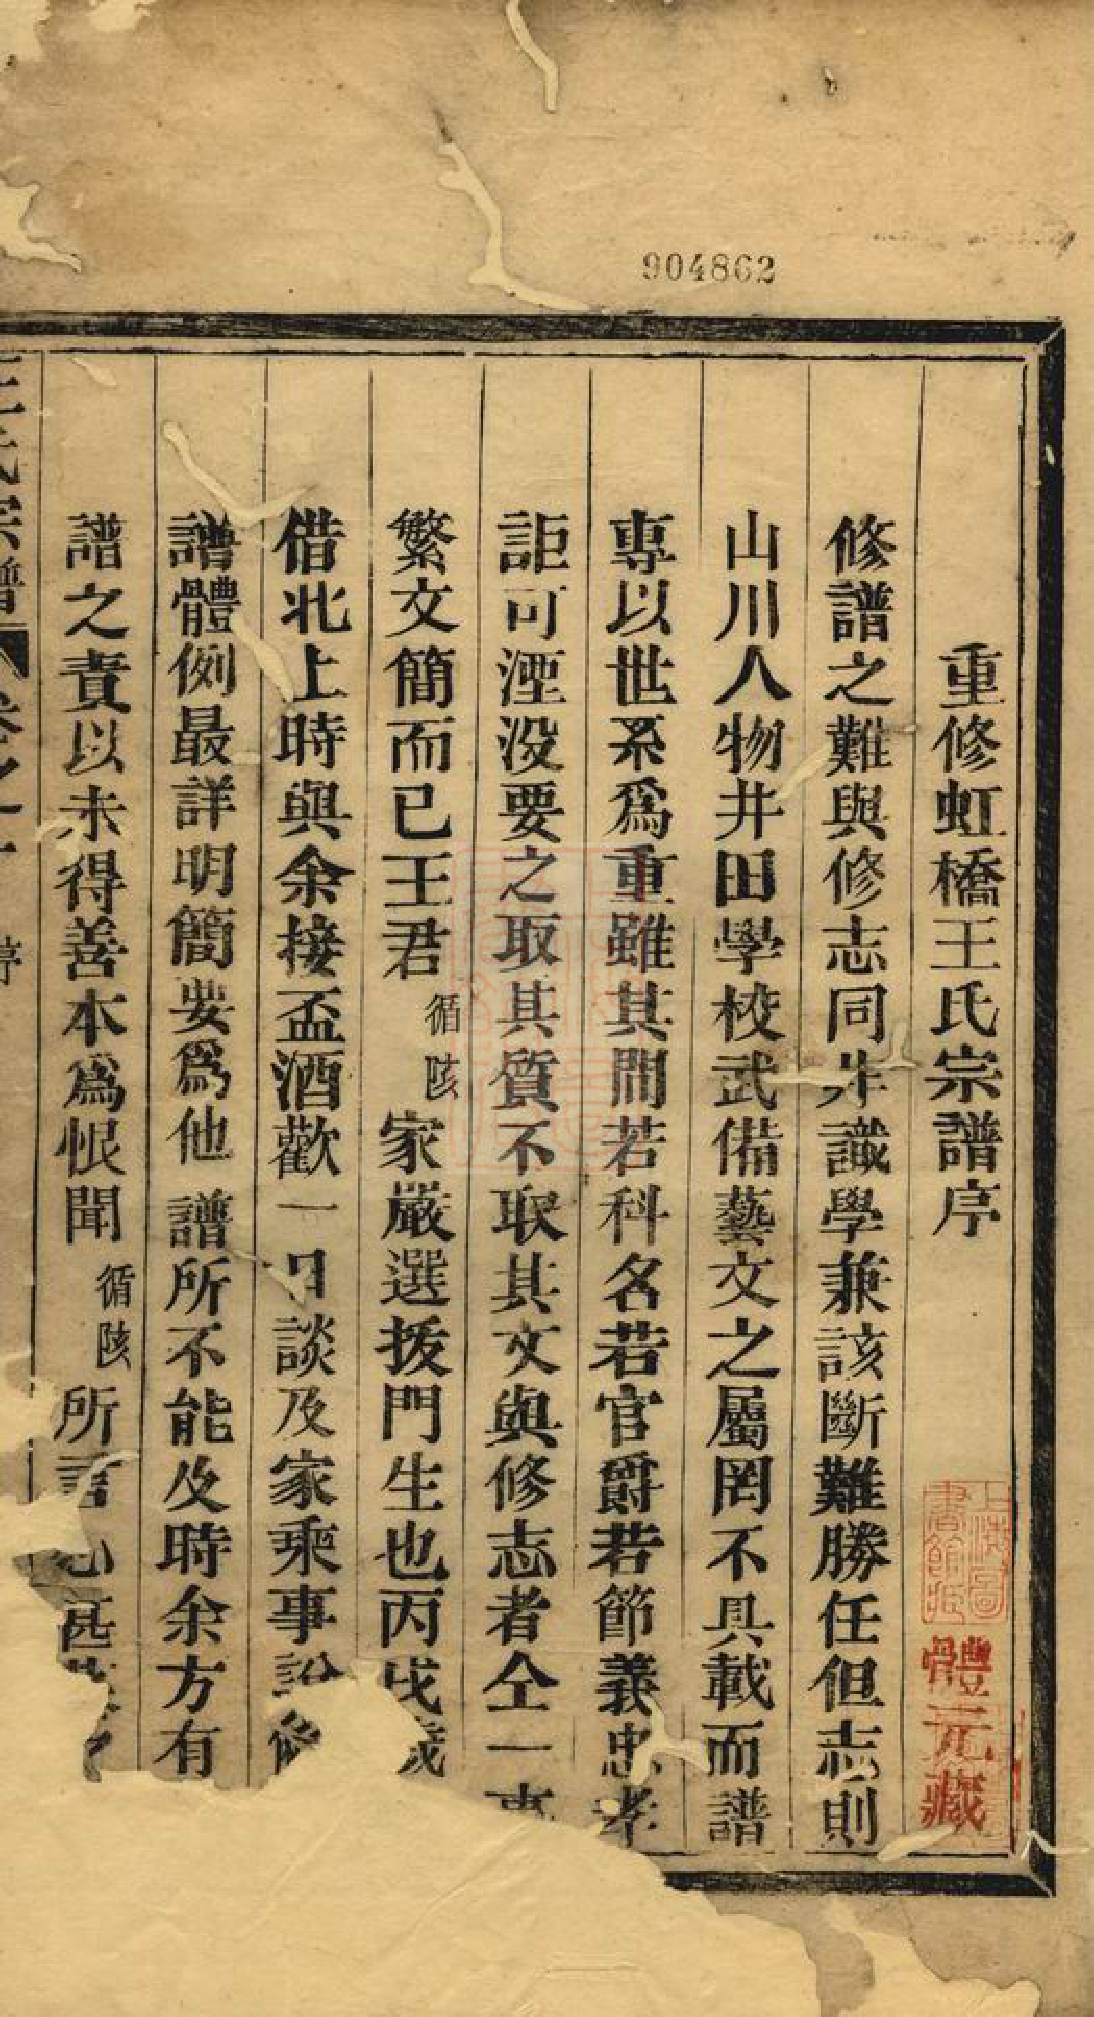 904862
重修虹橋王氏宗譜序
修譜之難與修志同非識學兼該斷難勝任但志則
山川人物井田學校武備藝文之屬罔不具載而譜
專以世系爲重雖其間若科名若官爵若節義忠孝
詎可湮沒要之取其質不取其文與修志者仝一事
繁文簡而已王君循陔家嚴選拔門生也丙戌歲
借北上時與余接盃酒歡一日談及家乘事說修
譜體例最詳明簡要爲他譜所不能及時余方有
譜之責以未得善本爲恨聞循陔所言心甚
王氏宗譜 卷之一 序
上海圖書館藏
體元藏